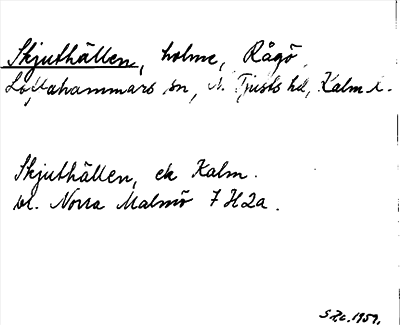 Skjuthällen, holme, Rågö,
Loftahammars sn, N. Tjusts hd, Kalm. l.
Skjuthällen, ek Kalm.
bl. Norra Malmö 7 H 2a.
1959.